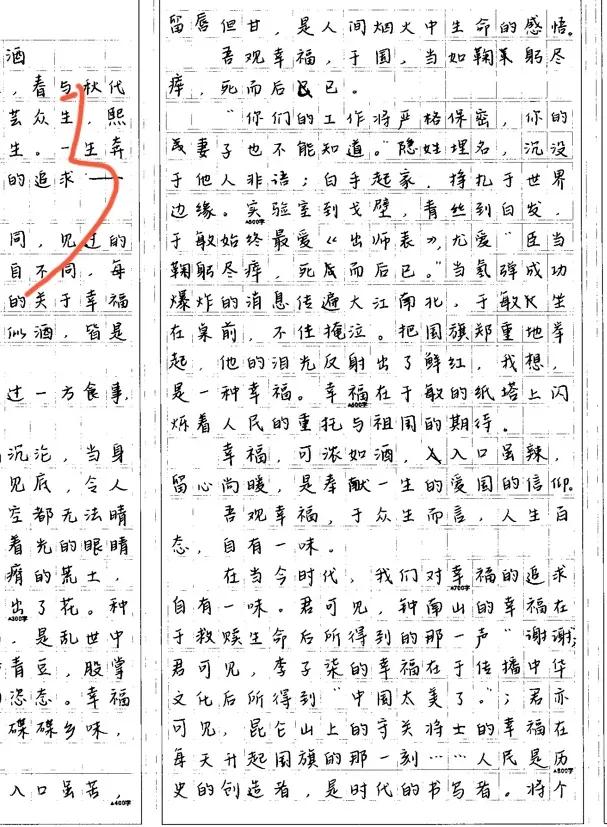 酒
，春与秋代
芸众生，熙
生。一生奔
的追求——
同，见过的
自不同，每
的关于幸福
似酒，皆是
过一方食事，
沉沦，当身
见底，令人
空都无法晴
着光的眼睛
瘠的荒土，
出了花。种
▲300字
，是乱世中
青豆，股掌
恣态。幸福
碟碟乡味，
入口虽苦，
▲400字
留唇但甘，是人间烟火中生命的感悟。
吾观幸福，于国，当如鞠躬尽
瘁，死而后已。
“你们的工作将严格保密，你的
妻子也不能知道。”隐姓埋名，沉没
于他人非语；白手起家，挣扎于世界
边缘。实验室到戈壁，青丝到白发，
▲500字
于敏始终最爱《出师表》，尤爱“臣当
鞠躬尽瘁，死而后已。”当氢弹成功
爆炸的消息传遍大江南北，于敏坐
在桌前，不住掩泣。把国旗郑重地举
起，他的泪光反射出了鲜红，我想，
是一种幸福。幸福在于敏的纸塔上闪
▲600字
烁着人民的重托与祖国的期待。
幸福，可浓如酒，入口虽辣，
留心尚暖，是奉献一生的爱国的信仰。
吾观幸福，于众生而言，人生百
态，自有一味。
在当今时代，我们对幸福的追求
▲700字
自有一味。君可见，钟南山的幸福在
于救赎生命后所得到的那一声“谢谢”；
君可见，李子柒的幸福在于传播中华
文化后所得到“中国太美了。”；君亦
可见，昆仑山上的守关将士的幸福在
每天升起国旗的那一刻……人民是历
▲800字
史的创造者，是时代的书写者。将个